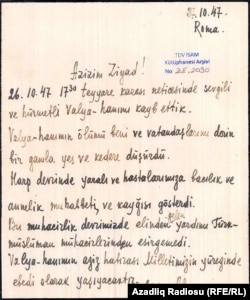 27.10.47.
Roma.
TDV İSAM
Kütüphanesi Arşivi
No 2E.2030
Azizim Ziyad!
26.10.47 17³⁰ teyyare kazası neticesinde sevgili
ve hürmetli Valya-hanımı kayb ettik.
Valya-hanımın ölümü beni ve vatandaşlarımı derin
bir gamla yes ve kedere düşürdü.
Harp devrinde yaralı ve hastalarımıza bacılık ve
annelik muhabbeti ve kaygısı gösterdi.
Bu muhacirlik devrimizde elinden gelen yardımı Türk-
müslüman muhacirlerinden esirgemedi.
Valya-hanımın aziz hatirası Milletimizin yüreginde
ebedi olarak yaşıyacaktır
Azadlıq Radiosu (RFE/RL)